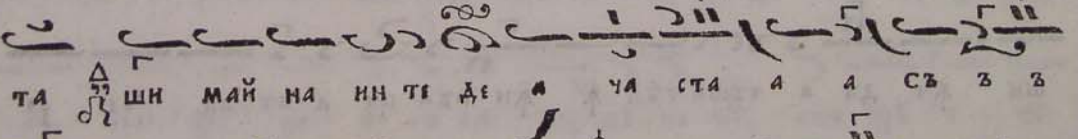 та ши май на ин те де а ча ста а а съ ъ ъ